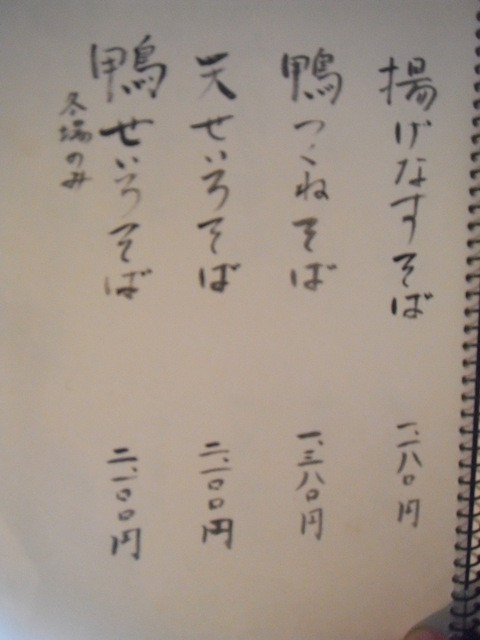 揚げなすそば 一、一八〇円
鴨つくねそば 一、三八〇円
天せいろそば 二、一〇〇円
鴨せいろそば 二、一〇〇円
冬場のみ